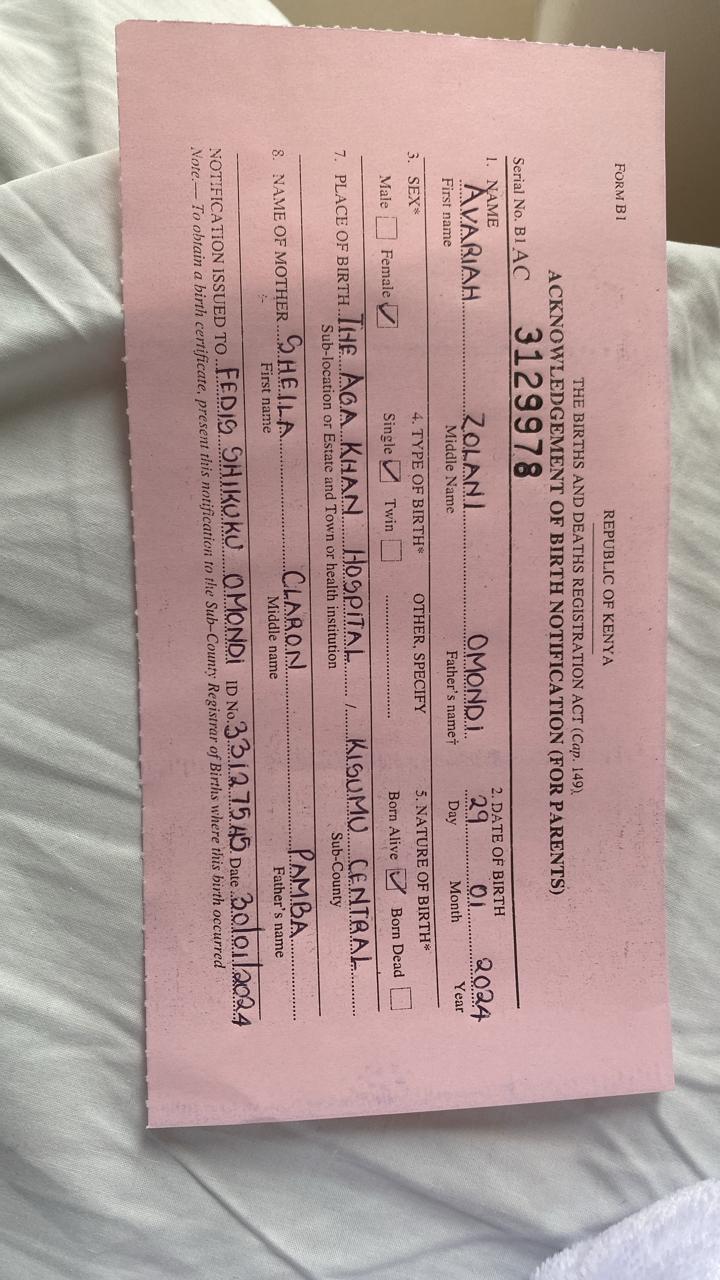 FORM B1
REPUBLIC OF KENYA
THE BIRTHS AND DEATHS REGISTRATION ACT (Cap. 149)
ACKNOWLEDGEMENT OF BIRTH NOTIFICATION (FOR PARENTS)
Serial No. B1 AC 3129978
1. NAME 2. DATE OF BIRTH
AVARIAH ZOLANI OMONDI 29 01 2024
First name Middle Name Father's name† Day Month Year
3. SEX* 4. TYPE OF BIRTH* OTHER, SPECIFY 5. NATURE OF BIRTH*
Male Female ✓ Single ✓ Twin Born Alive ✓ Born Dead
7. PLACE OF BIRTH THE AGA KHAN HOSPITAL / KISUMU CENTRAL
Sub-location or Estate and Town or health institution Sub-County
8. NAME OF MOTHER SHEILA CLARON PAMBA
First name Middle name Father's name
NOTIFICATION ISSUED TO FEDIS SHIKUKU OMONDI ID No. 33127545 Date 30/01/2024
Note.— To obtain a birth certificate, present this notification to the Sub-County Registrar of Births where this birth occurred